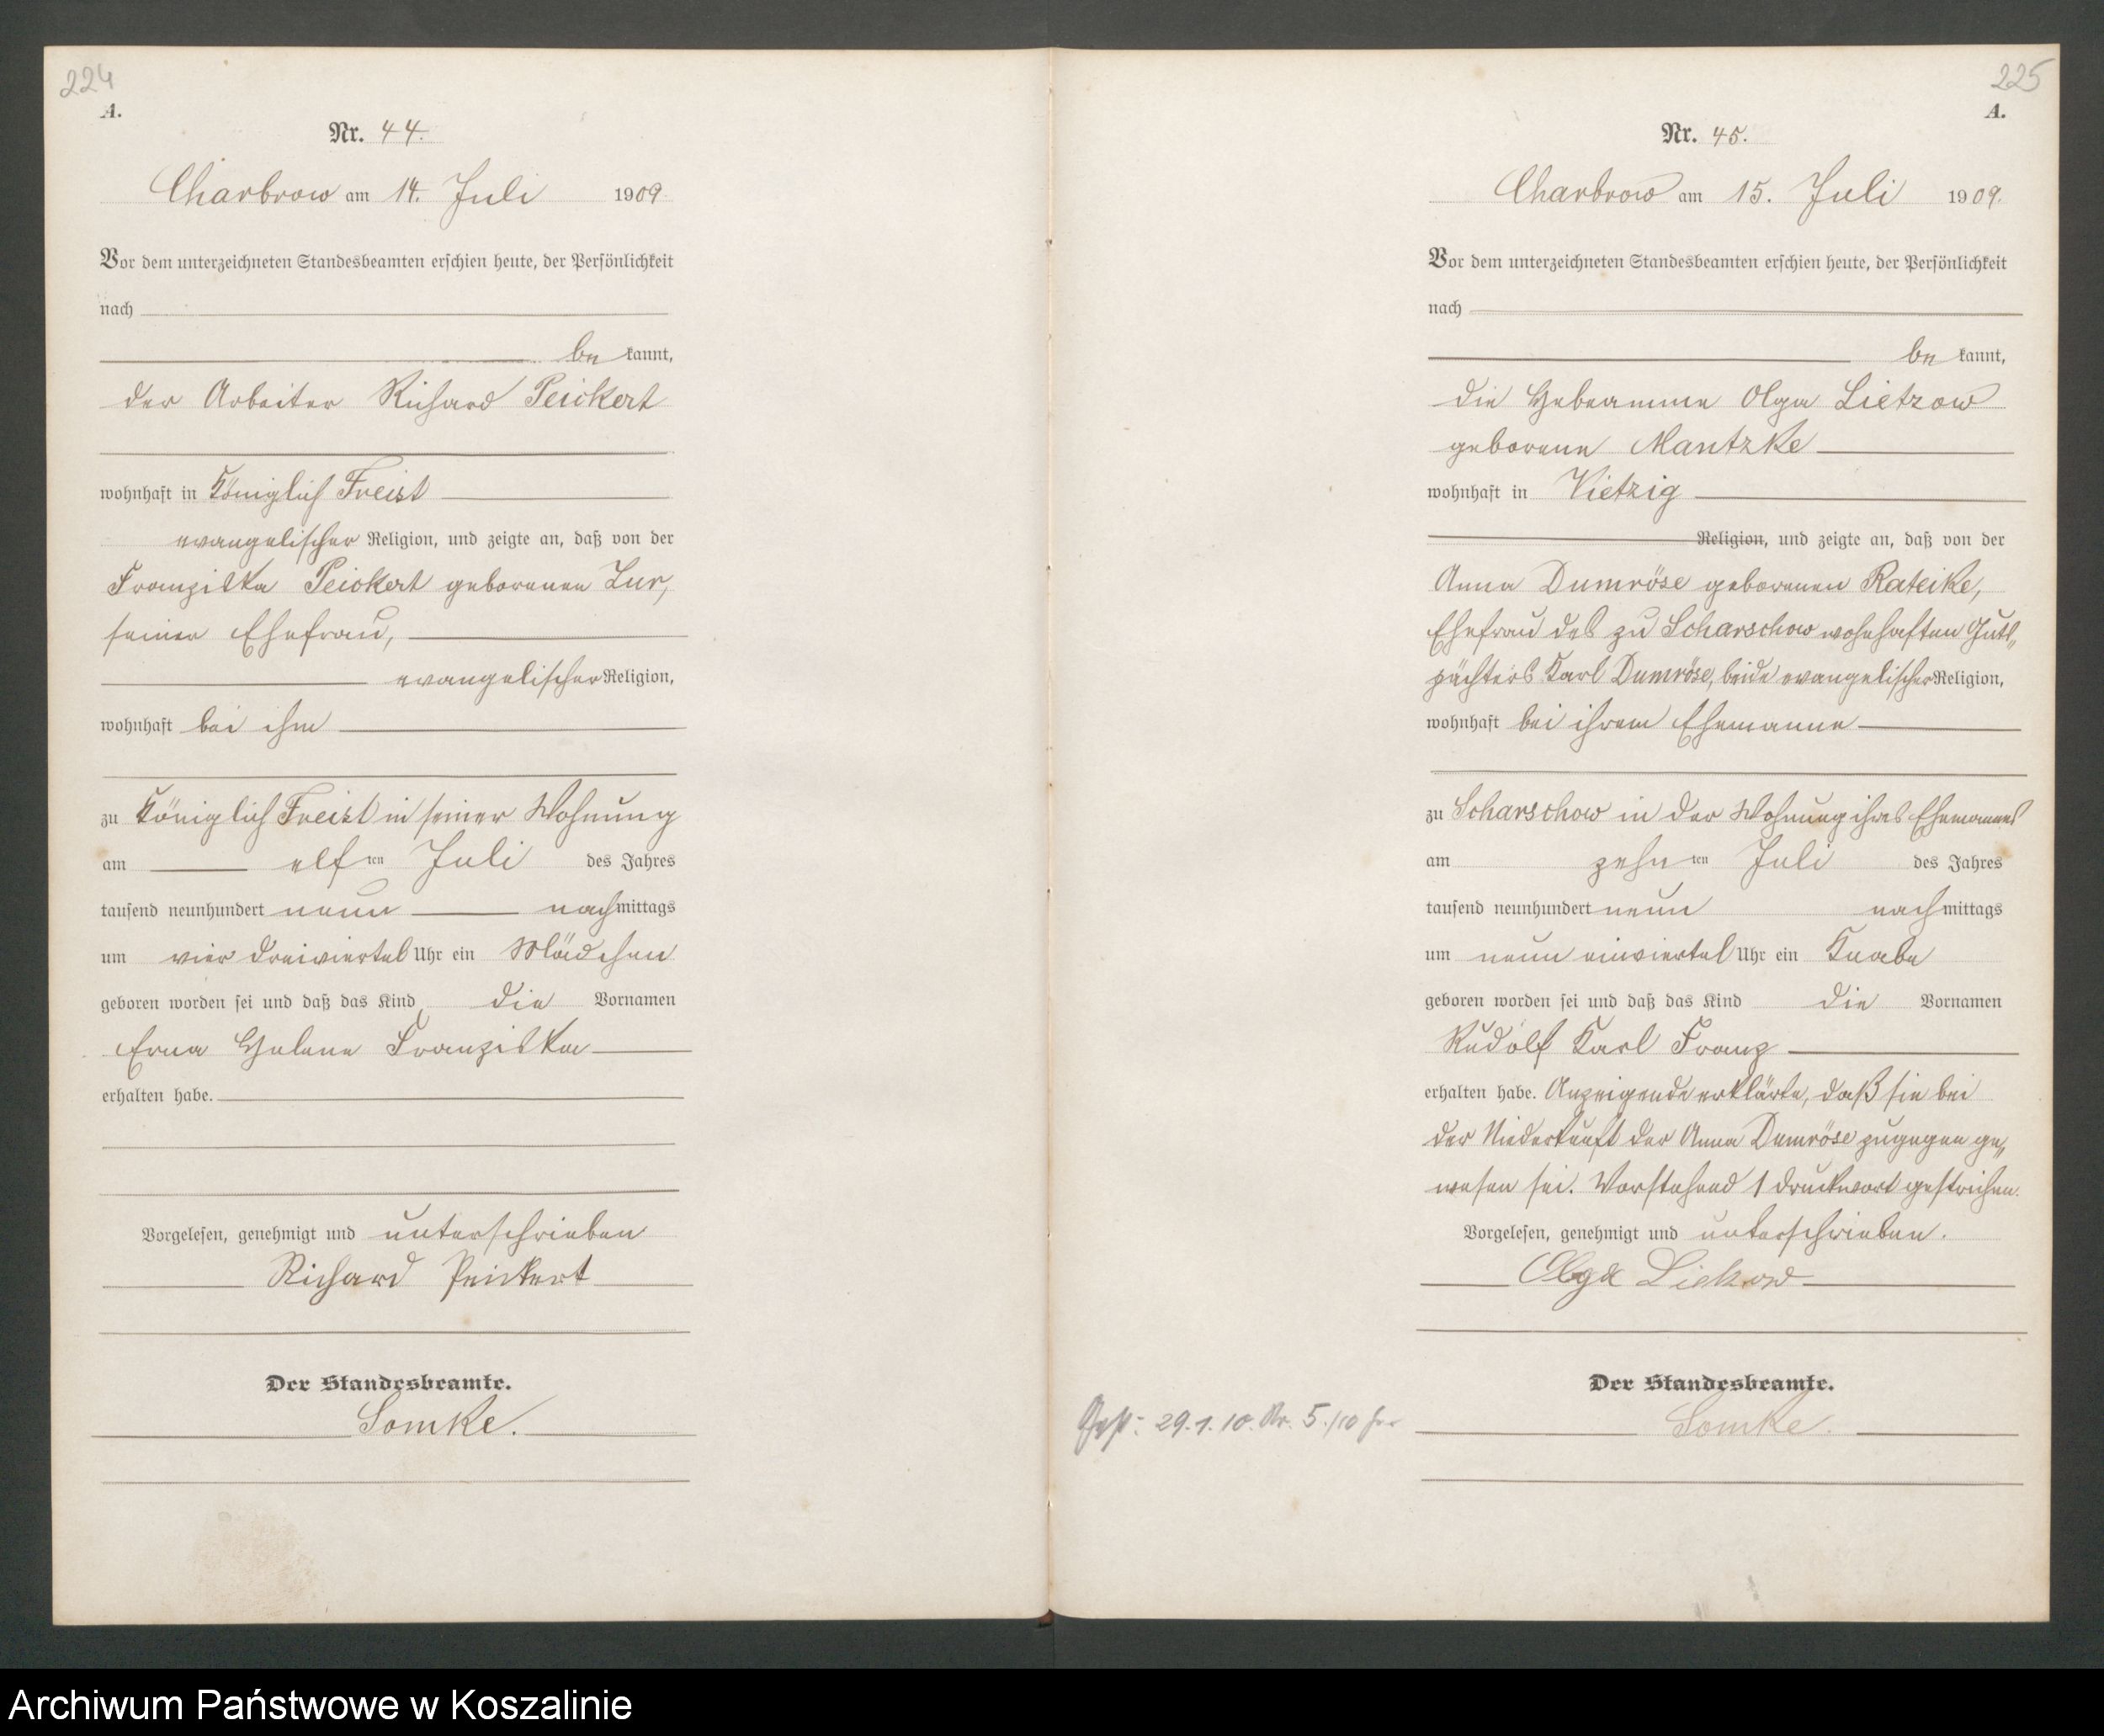 224
A.
Nr. 44.
Charbrow am 14. Juli 1909
Vor dem unterzeichneten Standesbeamten erschien heute, der Persönlichkeit
nach
be kannt,
der Arbeiter Richard Peickert
wohnhaft in Königlich Freist
evangelischer Religion, und zeigte an, daß von der
Franziska Peickert geborenen Zur,
seiner Ehefrau,
evangelischer Religion,
wohnhaft bei ihm
zu Königlich Freist in seiner Wohnung
am elf ten Juli des Jahres
tausend neunhundert neun nachmittags
um vier dreiviertel Uhr ein Mädchen
geboren worden sei und daß das Kind die Vornamen
Erna Helene Franziska
erhalten habe.
Vorgelesen, genehmigt und unterschrieben
Richard Peickert
Der Standesbeamte.
Somke.
225
A.
Nr. 45.
Charbrow am 15. Juli 1909.
Vor dem unterzeichneten Standesbeamten erschien heute, der Persönlichkeit
nach
be kannt,
die Hebeamme Olga Lietzow
geborene Mantzke
wohnhaft in Vietzig
Religion, und zeigte an, daß von der
Anna Dumröse geborenen Rateike,
Ehefrau des zu Scharschow wohnhaften Guts„
pächters Karl Dumröse, beide evangelischer Religion,
wohnhaft bei ihrem Ehemanne
zu Scharschow in der Wohnung ihres Ehemannes
am zehn ten Juli des Jahres
tausend neunhundert neun nachmittags
um neun einviertel Uhr ein Knabe
geboren worden sei und daß das Kind die Vornamen
Rudolf Karl Franz
erhalten habe. Anzeigende erklärte, daß sie bei
der Niederkunft der Anna Dumröse zugegen ge„
wesen sei. Vorstehend 1 Druckwort gestrichen.
Vorgelesen, genehmigt und unterschrieben.
Olga Lietzow
Der Standesbeamte.
Somke.
29.1.10. Nr. 5./10
Archiwum Państwowe w Koszalinie